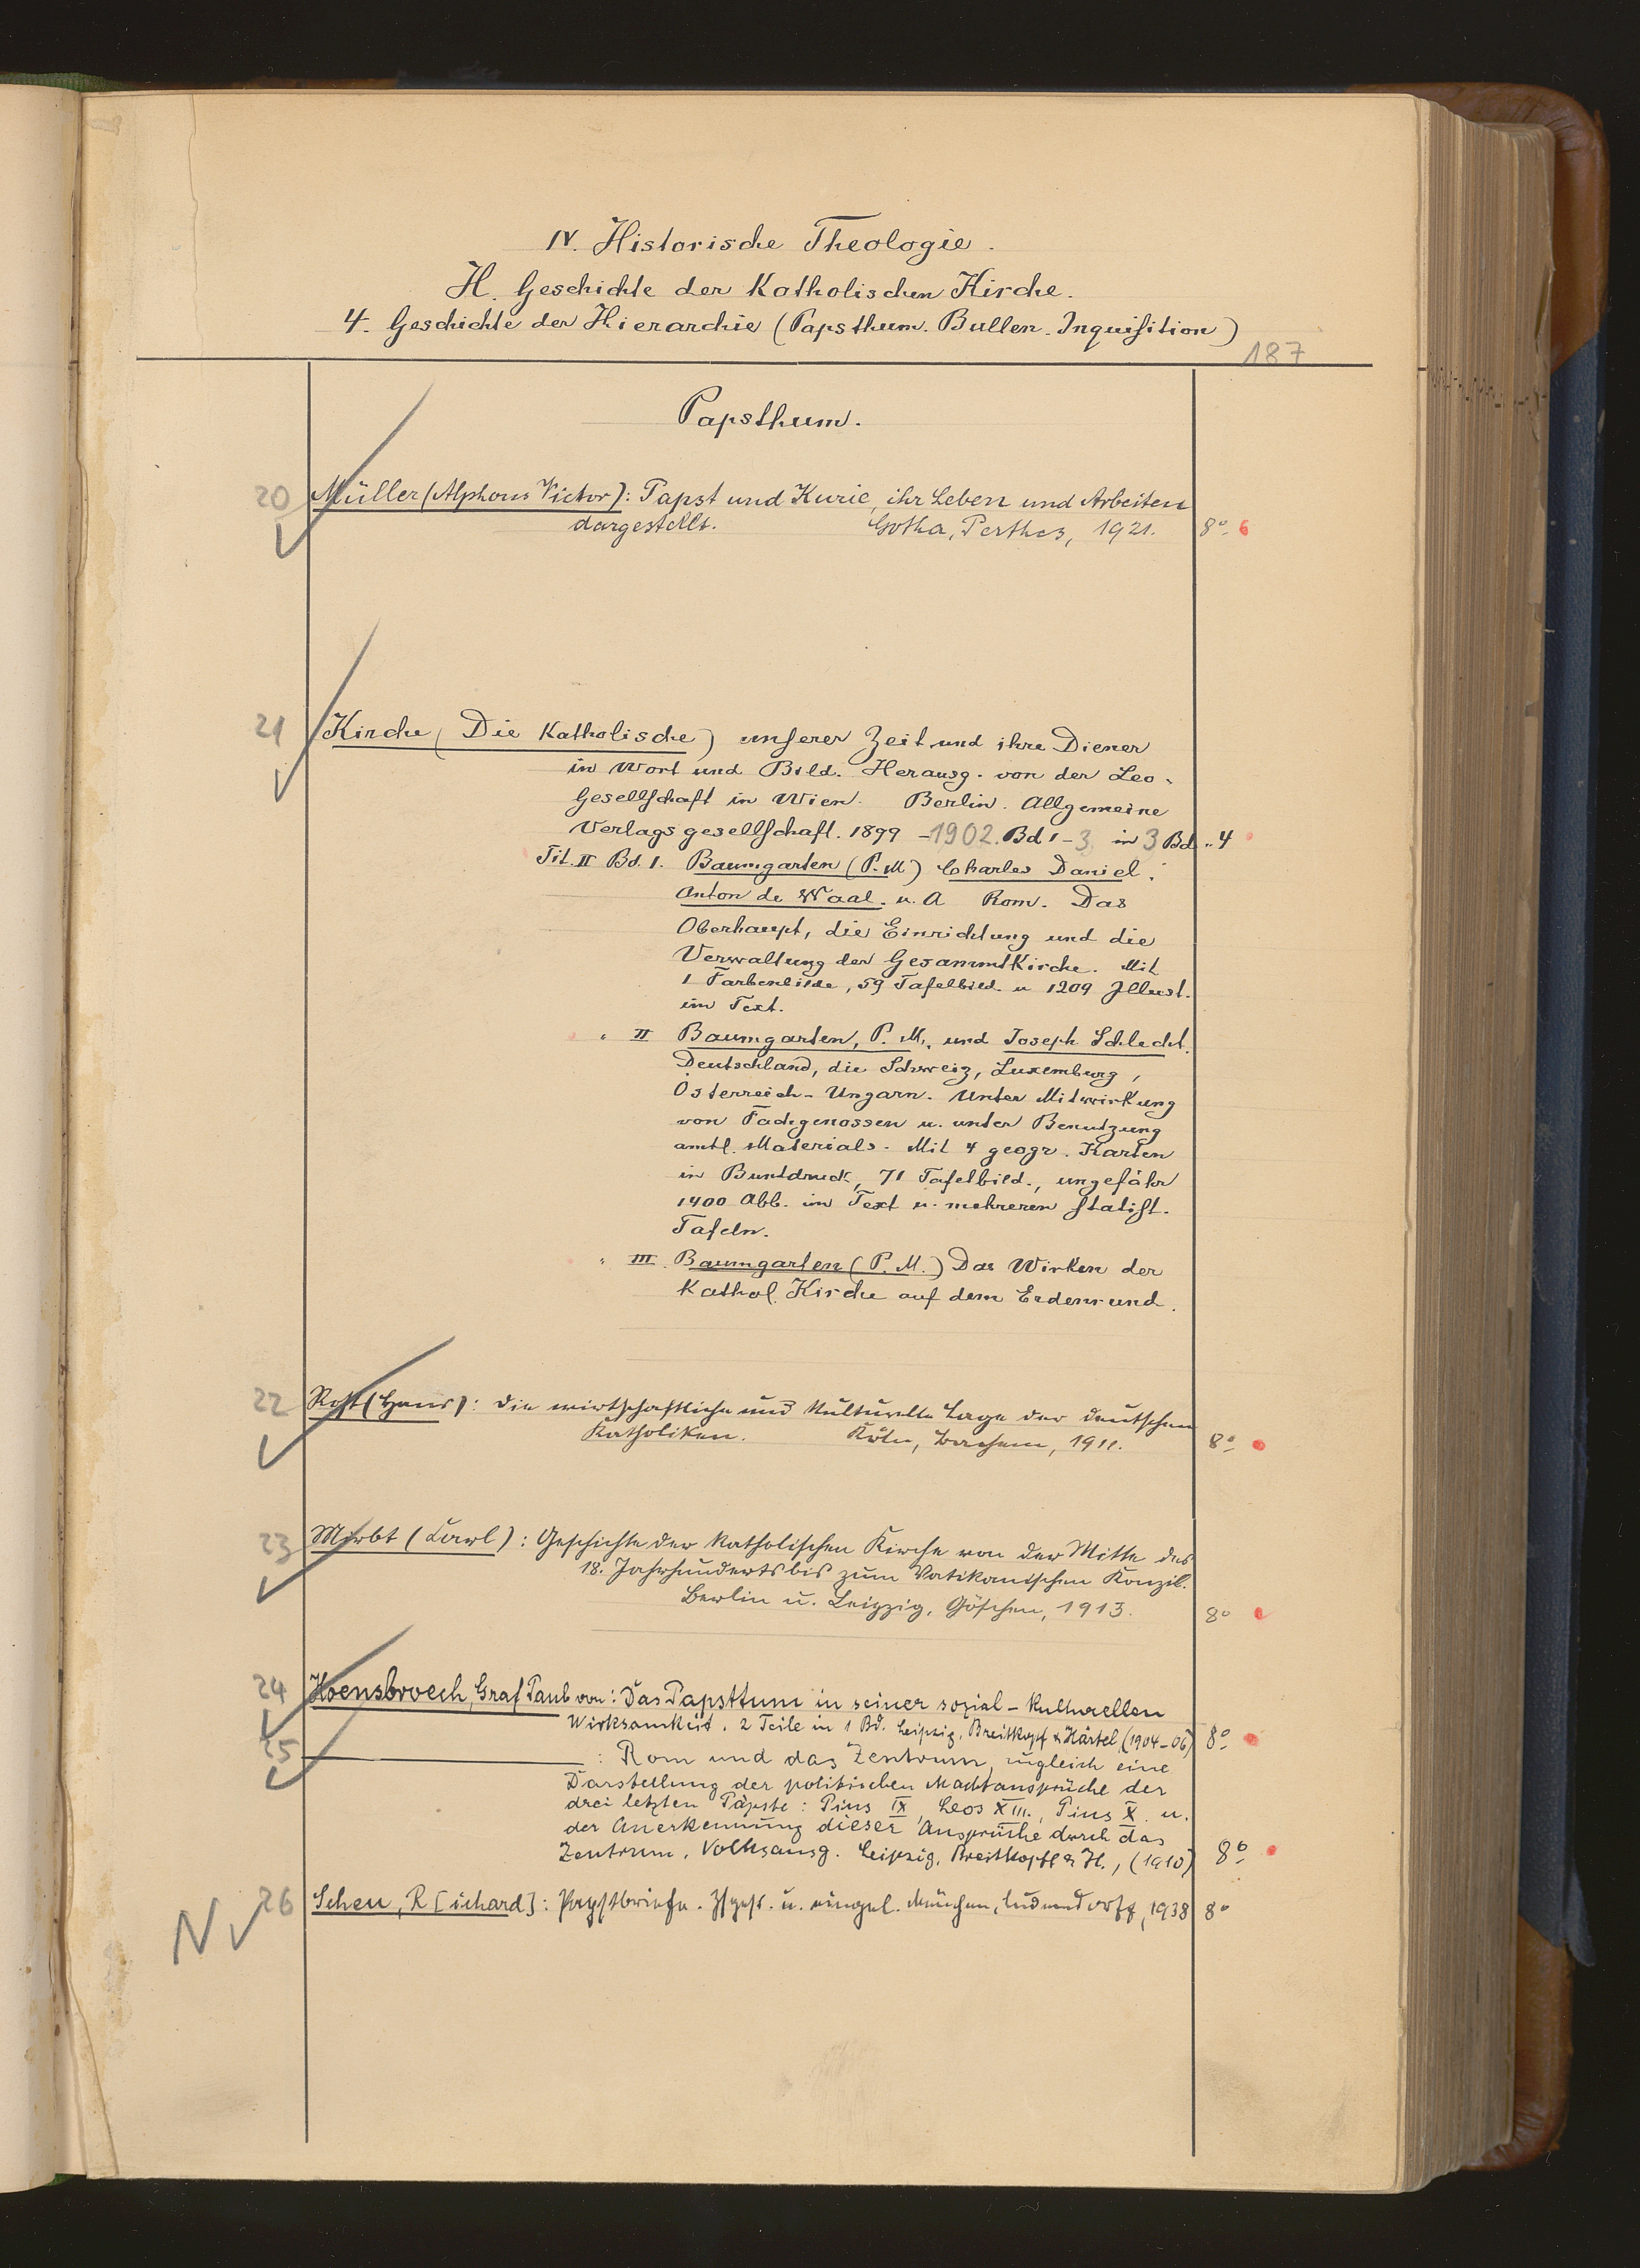 IV. Historische Theologie.
H. Geschichte der Katholischen Kirche.
4. Geschichte der Hierarchie (Papsthum. Bullen. Inquisition)
187
Papsthum.
20 Müller (Alphons Victor): Papst und Kurie, ihr Leben und Arbeiten
dargestellt. Gotha, Perthes, 1921. 8°
21 Kirche (Die Katholische) unserer Zeit und ihre Diener
in Wort und Bild. Herausg. von der Leo-
Gesellschaft in Wien. Berlin. Allgemeine
Verlagsgesellschaft. 1899 - 1902. Bd 1-3 in 3 Bd. 4
Tit. II Bd. 1. Baumgarten (P. M) Charles Daniel.
Anton de Waal. u. A Rom. Das
Oberhaupt, die Einrichtung und die
Verwaltung der GesammtKirche. Mit
1 Farbenbilde, 59 Tafelbild. u 1209 Illust.
im Text.
" II Baumgarten, P. M., und Joseph Schlecht.
Deutschland, die Schweiz, Luxemburg,
Österreich-Ungarn. Unter Mitwirkung
von Fachgenossen u. unter Benutzung
amtl. Materials. Mit 4 geogr. Karten
in Buntdruck, 71 Tafelbild., ungefähr
1400 Abb. im Text u. mehreren statist.
Tafeln.
" III. Baumgarten (P. M.) Das Wirken der
Kathol. Kirche auf dem Erdenrund.
22 Rost (Hans): Die wirtschaftliche und Kulturelle Lage der deutschen
Katholiken. Köln, Bachem, 1911. 8°
23 Mirbt (Carl): Geschichte der Katholischen Kirche von der Mitte des
18. Jahrhunderts bis zum Vatikanischen Konzil.
Berlin u. Leipzig, Göschen, 1913. 8°
24 Hoensbroech, Graf Paul von: Das Papsttum in seiner sozial-kulturellen
Wirksamkeit. 2 Teile in 1 Bd. Leipzig, Breitkopf & Härtel, (1904-06) 8°
25 : Rom und das Zentrum, zugleich eine
Darstellung der politischen Machtansprüche der
drei letzten Päpste: Pius IX, Leos XIII., Pius X. u.
der Anerkennung dieser Ansprüche durch das
Zentrum. Volksausg. Leipzig, Breitkopf & H., (1910) 8°
N 26 Scheu, R[ichard]: Papstbriefe. Zsgest. u. eingel. München, Ludendorff, 1938 8°